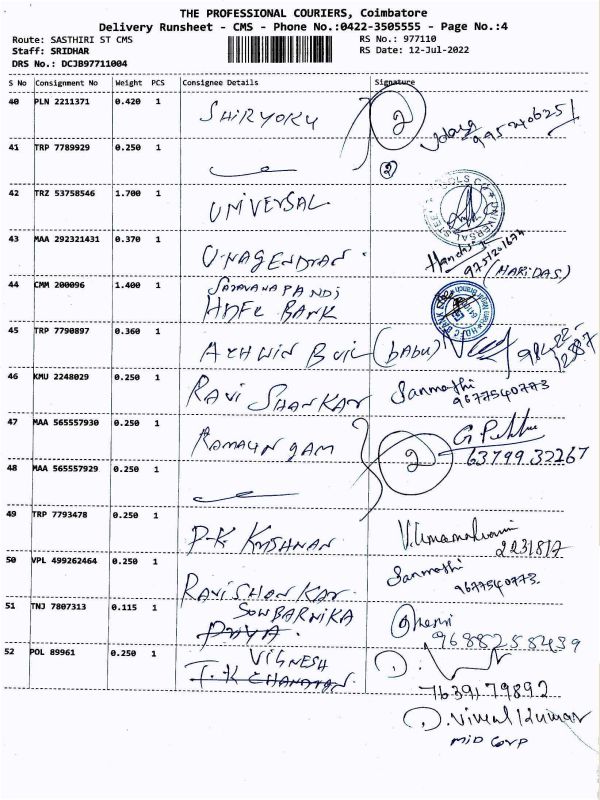 THE PROFESSIONAL COURIERS, Coimbatore
Delivery Runsheet - CMS - Phone No.:0422-3505555 - Page No.:4
Route: SASTHIRI ST CMS RS No.: 977110
Staff: SRIDHAR RS Date: 12-Jul-2022
DRS No.: DCJB97711004
S No Consignment No Weight PCS Consignee Details Signature
40 PLN 2211371 0.420 1 SHIRYOKU 2 9952406251
41 TRP 7789929 0.250 1 2
42 TRZ 53758546 1.700 1 UNIVERSAL
43 MAA 292321431 0.370 1 U.NAGENDIRAN
(HARIDAS)
44 CMM 200096 1.400 1 SARAVANA PANDI
HDFC BANK
45 TRP 7790897 0.360 1 (BABU)
46 KMU 2248029 0.250 1 RAVI SHANKAR Sanmathi
9677540773
47 MAA 565557930 0.250 1 2
63799 32267
48 MAA 565557929 0.250 1
49 TRP 7793478 0.250 1 P.K KRISHNAN
2231817
50 VPL 499262464 0.250 1 RAVISHANKAR Sanmathi
9677540773
51 TNJ 7807313 0.115 1 SOWBARNIKA
PRIYA 9688258439
52 POL 89961 0.250 1 VIGNESH
T.K CHANDRAN 7639179892
D. Vimal Kumar
MID CORP